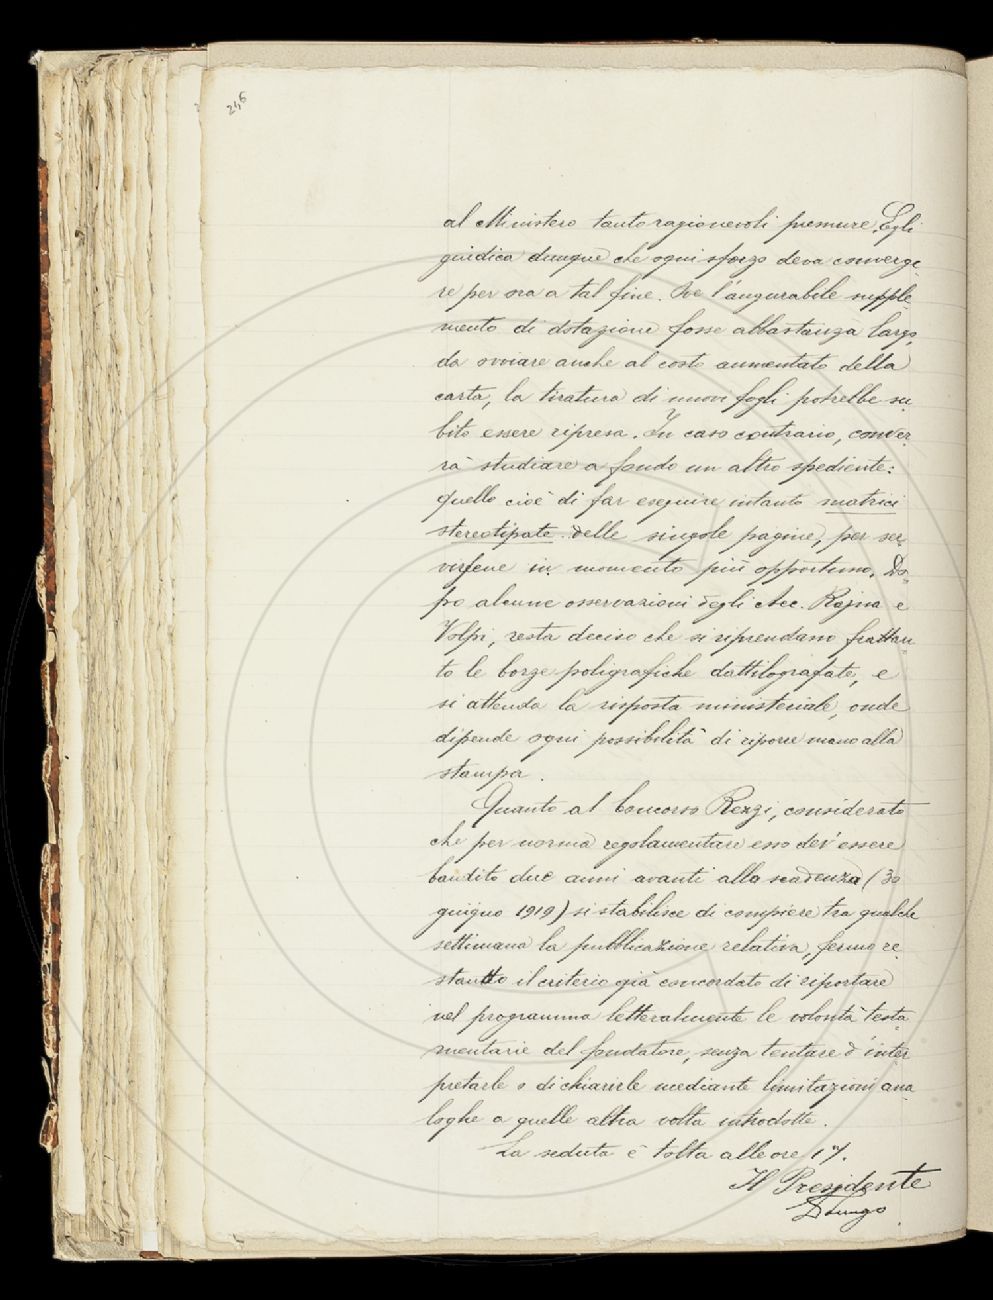 246
al Ministero tanto ragionevoli premure. Egli
giudica dunque che ogni sforzo deva converge-
re per ora a tal fine. Se l'augurabile supple-
mento di dotazione fosse abbastanza largo,
da ovviare anche al costo aumentato della
carta, la tiratura di nuovi fogli potrebbe su-
bito essere ripresa. In caso contrario, conver-
rà studiare a fondo un altro spediente:
quello cioè di far eseguire intanto matrici
stereotipate delle singole pagine, per ser-
virsene in momento più opportuno. Do-
po alcune osservazioni degli Acc. Rajna e
Volpi, resta deciso che si riprendano frattan-
to le borze poligrafiche dattilografate, e
si attenda la risposta ministeriale, onde
dipende ogni possibilità di riporre mano alla
stampa.
Quanto al Concorso Rezzi, considerato
che per norma regolamentare esso dev'essere
bandito due anni avanti alla scadenza (30
giugno 1919) si stabilisce di compiere tra qualche
settimana la pubblicazione relativa, fermo re-
stando il criterio già concordato di riportare
nel programma letteralmente le volontà testa-
mentarie del fondatore, senza tentare d'inter-
pretarle o dichiarirle mediante limitazioni ana-
loghe a quelle altra volta introdotte.
La seduta è tolta alle ore 17.
Il Presidente